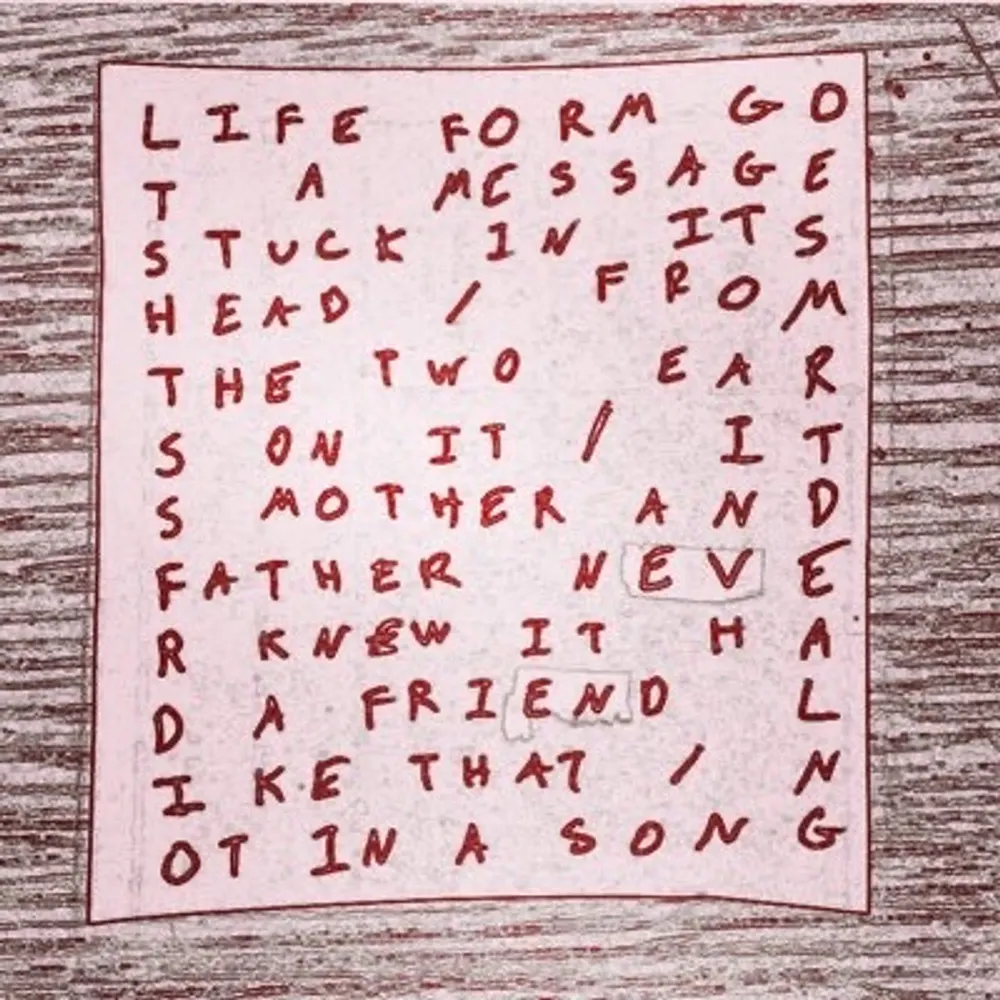 LIFE FORM GO
T A MESSAGE
STUCK IN ITS
HEAD / FROM
THE TWO EAR
S ON IT / IT
S MOTHER AND
FATHER NEVE
R KNEW IT HA
D A FRIEND L
IKE THAT / N
OT IN A SONG